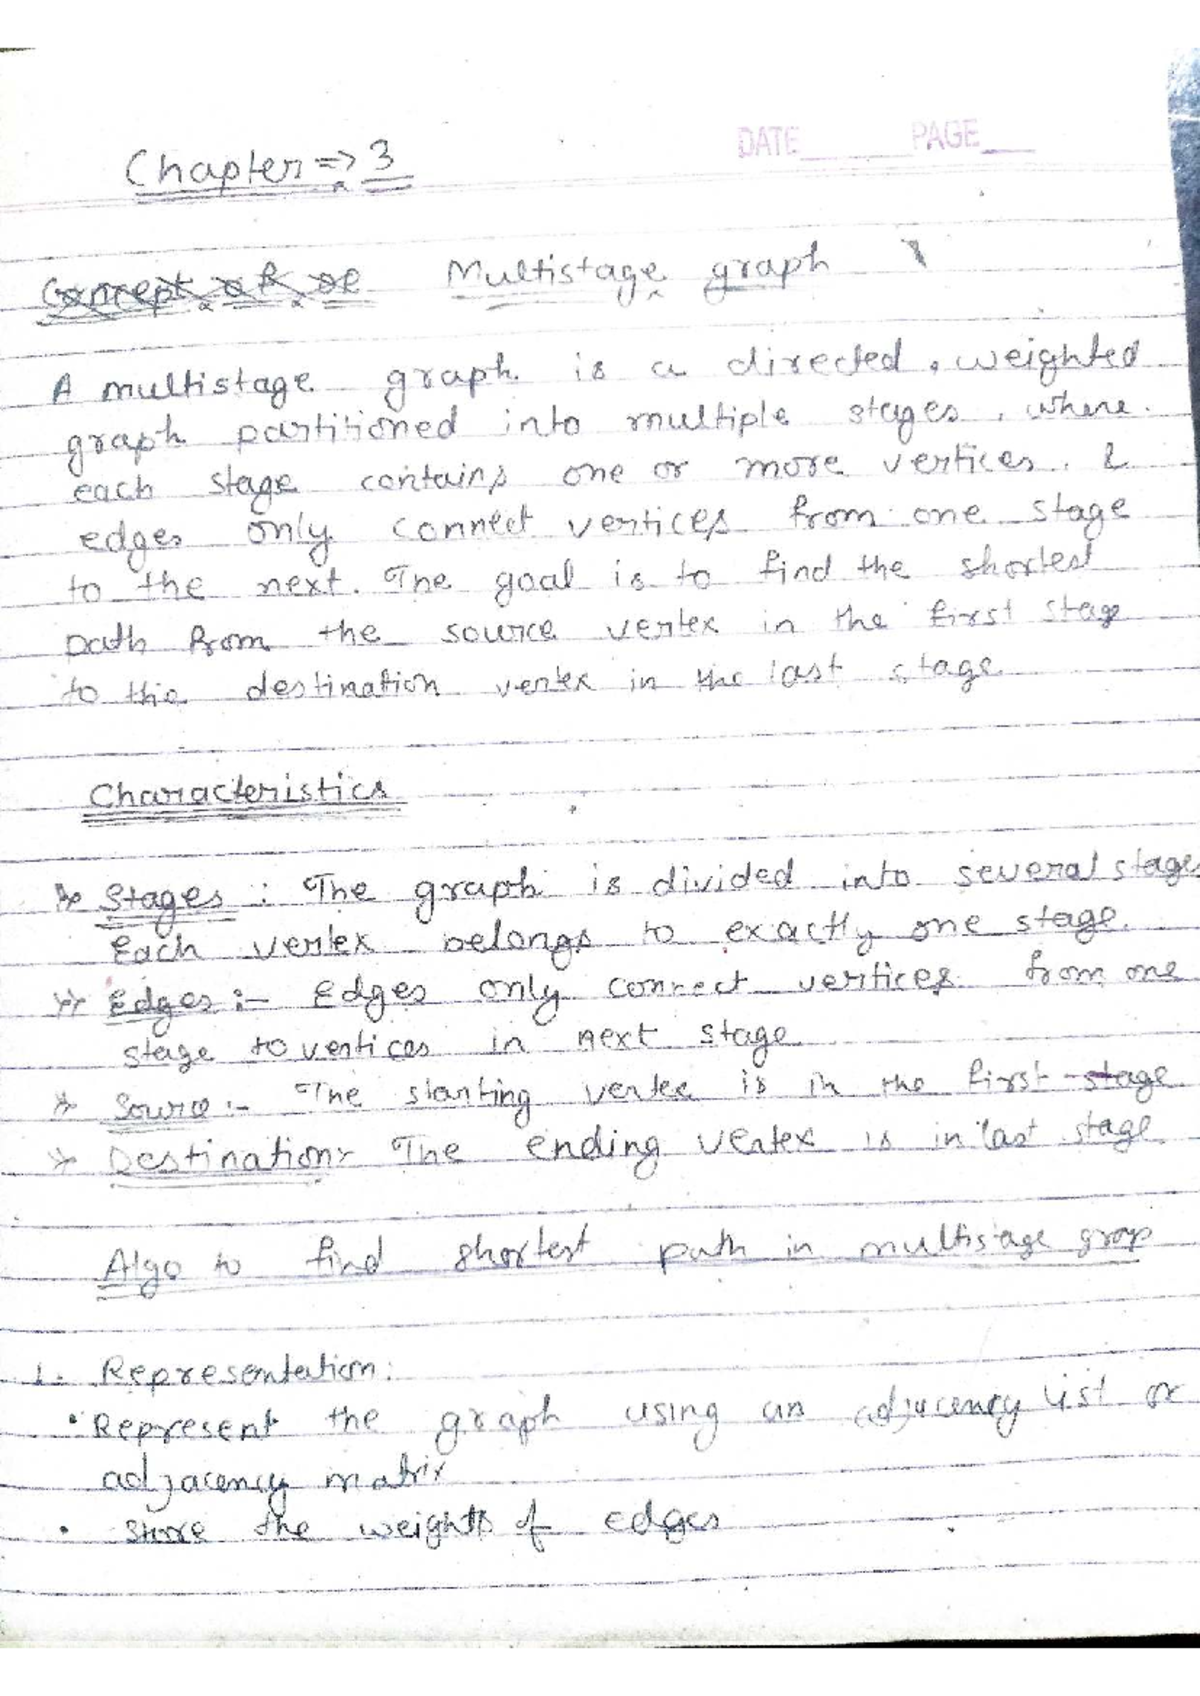 DATE PAGE
Chapter => 3
Multistage graph
A multistage graph is a directed, weighted
graph partitioned into multiple stages, where
each stage contains one or more vertices, &
edges only connect vertices from one stage
to the next. The goal is to find the shortest
path from the source vertex in the first stage
to the destination vertex in the last stage
Characteristics
Stages : The graph is divided into several stages
Each vertex belongs to exactly one stage.
Edges :- Edges only connect vertices from one
stage to vertices in next stage
Source :- The starting vertex is in the first stage
Destination:- The ending vertex is in last stage
Algo to find shortest path in multistage grap
1. Representation:
• Represent the graph using an adjacency list or
adjacency matrix
• Store the weights of edges